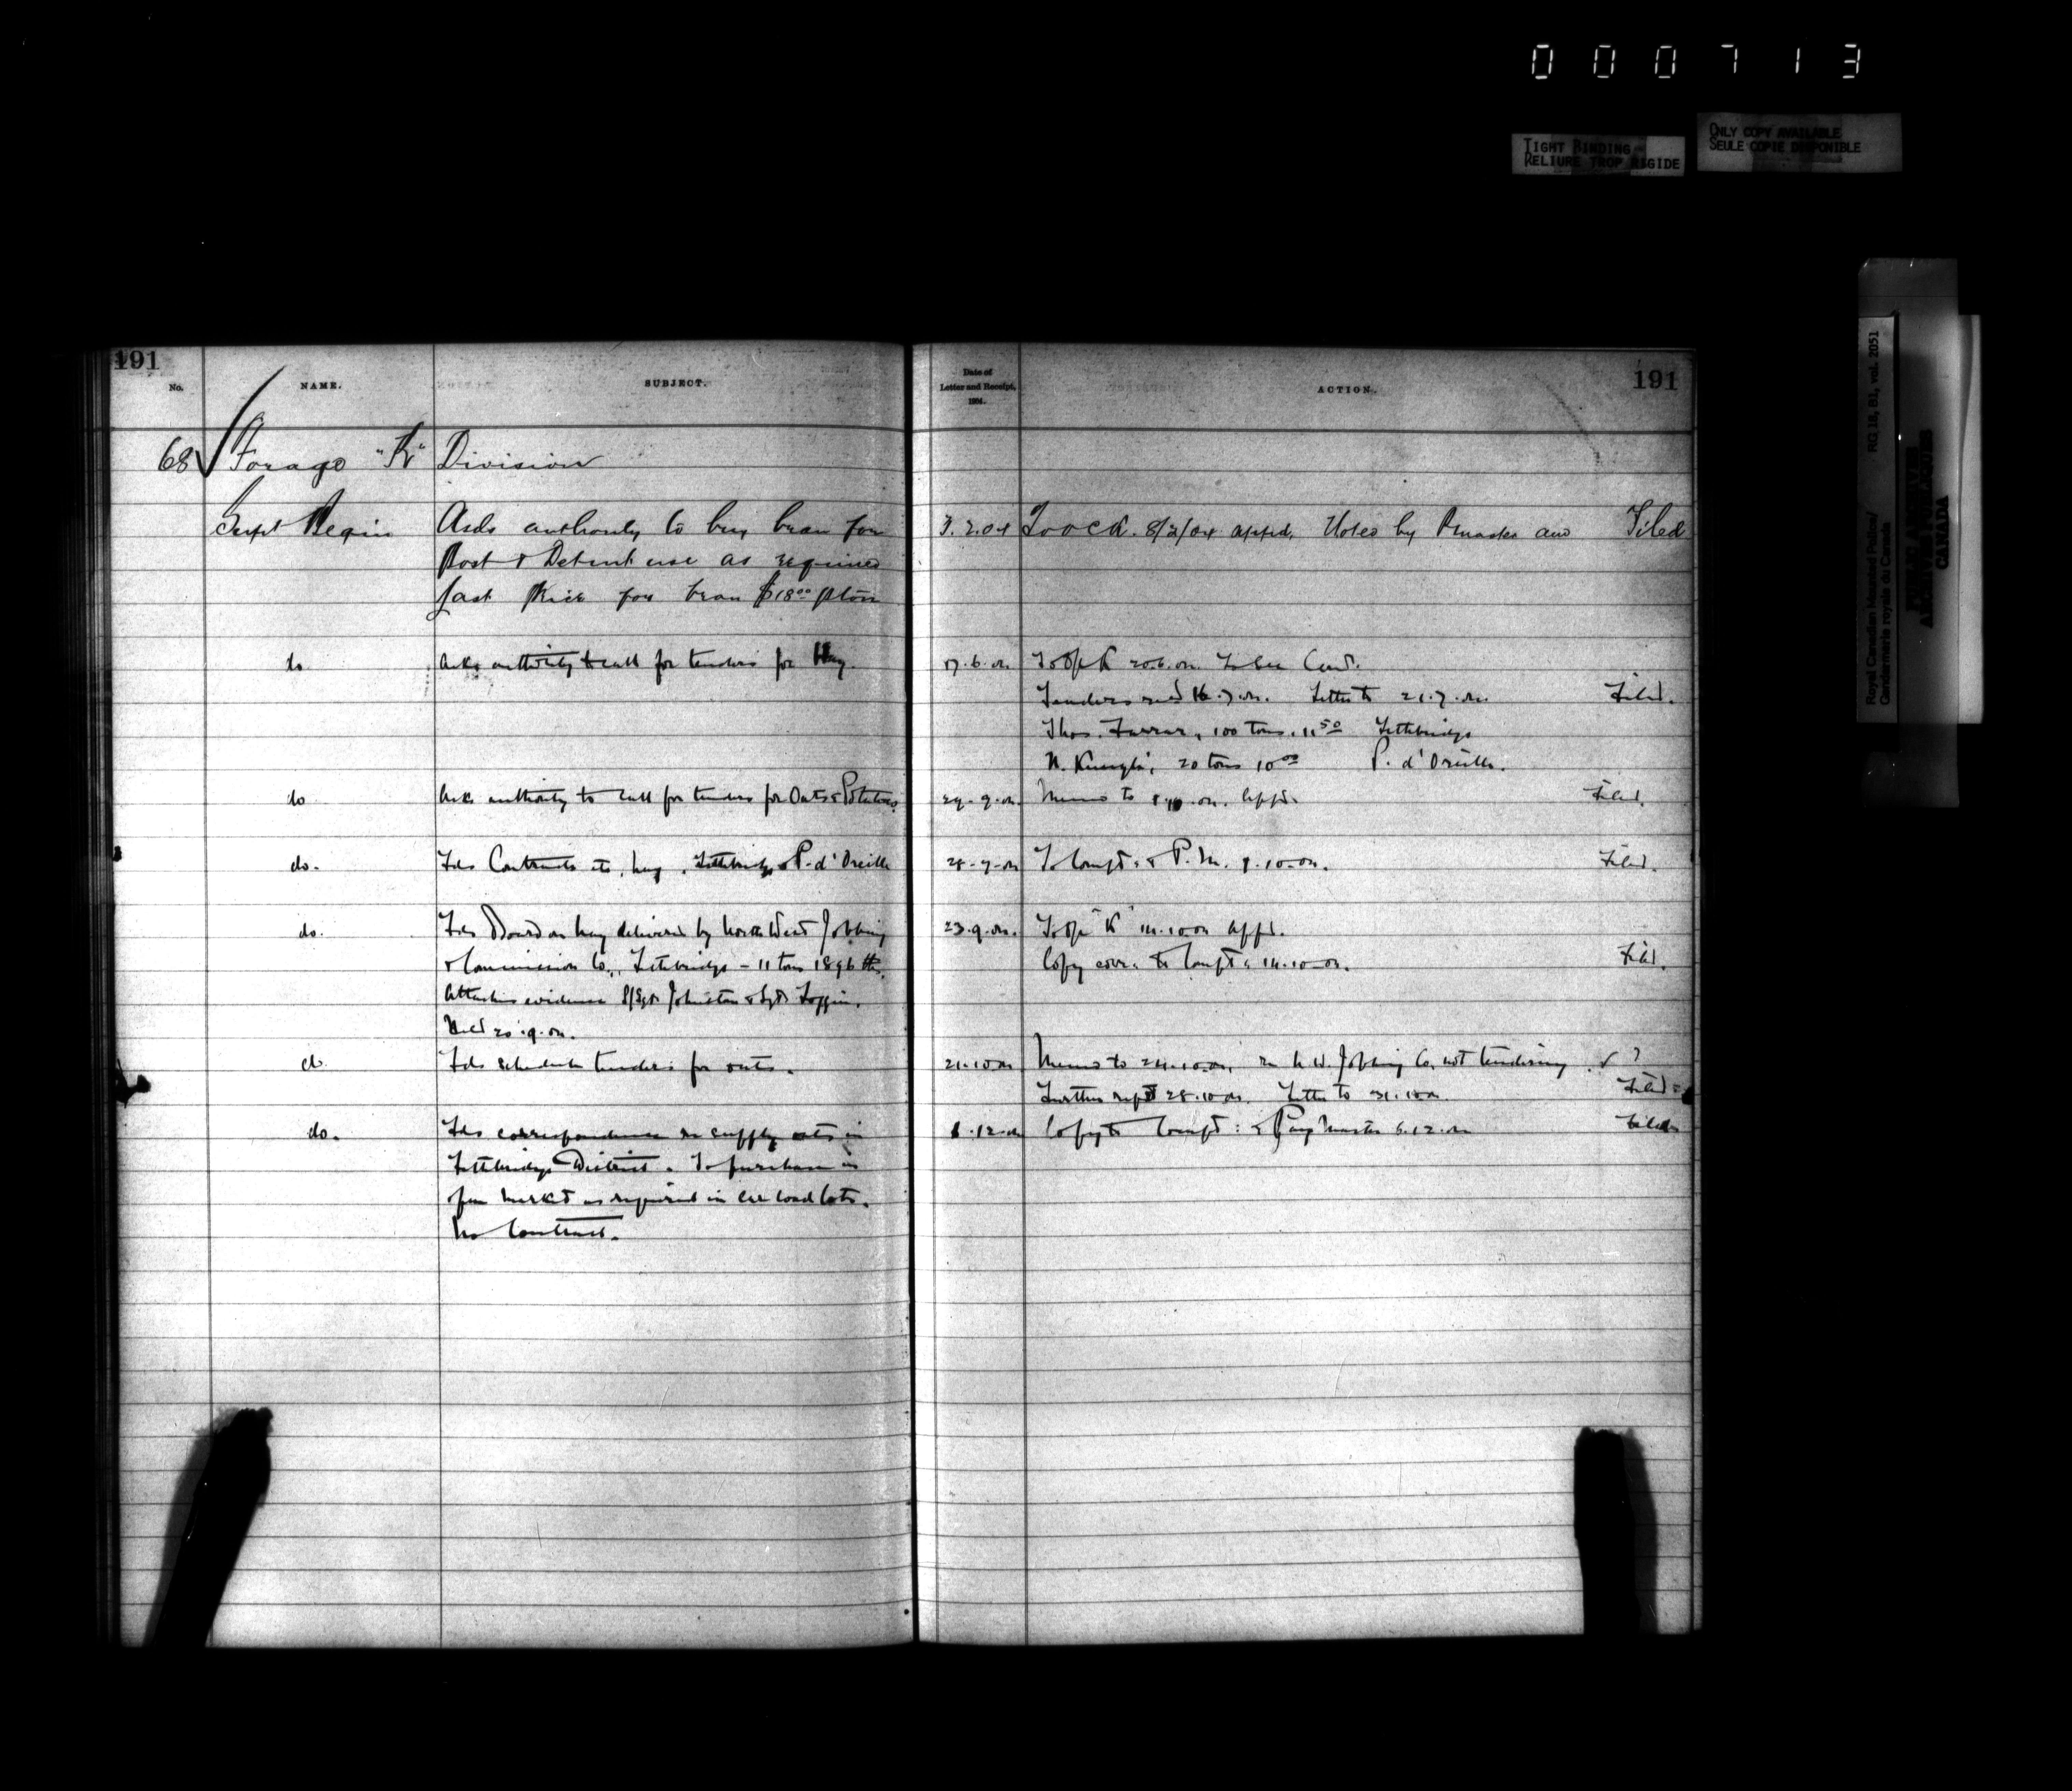 000713
TIGHT BINDING
RELIURE TROP RIGIDE
ONLY COPY AVAILABLE
SEULE COPIE DISPONIBLE
Royal Canadian Mounted Police/
Gendarmerie royale du Canada
RG 18, B1, vol. 2051
PUBLIC ARCHIVES
ARCHIVES PUBLIQUES
CANADA
191
No. NAME. SUBJECT.
Date of
Letter and Receipt,
1904.
ACTION.
191
68 Forage "K" Division
Supt Begin Asks authority to buy bran for 3.2.04 To O.C.K. 8/2/04 appd. Noted by Pmaster and Filed
Post & Detmt use as required
last Price for bran $18.00 p ton
do Asks authority to call for tenders for Hay. 17.6.04 20.6.04
Tenders recd 16.7.04. Letter to 21.7.04. Filed.
Thos. Farrar, 100 tons, 11.50 Lethbridge
N. 20 tons 10.00 P. d'Oreille.
do Asks authority to call for tenders for Oats & Potatoes. 29.9.04 Memo to 04. Appd. Filed.
do. Fds Contracts hay, Lethbridge & P. d'Oreille To Compt: & P.M. 10.04. Filed.
do. Fds Board on hay delivered by North West Jobbing 23.9.04. To Ofc "K" 14.10.04 Appd.
& Commission Co., Lethbridge - 11 tons 1896 lbs. Copy cov. to Compt: 14.10.04. Filed.
Attaches evidence S/Sgt Johnston & Sgt
Held 20.9.04.
do. Fds schedule tenders for oats. 21.10.04 Memo to 24.10.04 re N.W. Jobbing Co. not tendering. ✓ ?
Further rept 28.10.04. Letter to 31.10.04. Filed
do. Fds correspondence re supply oats in 12.04 Copy to Compt: & Paymaster 6.12.04 Filed
Lethbridge District. To purchase in
open market as required in car load lots.
No Contract.